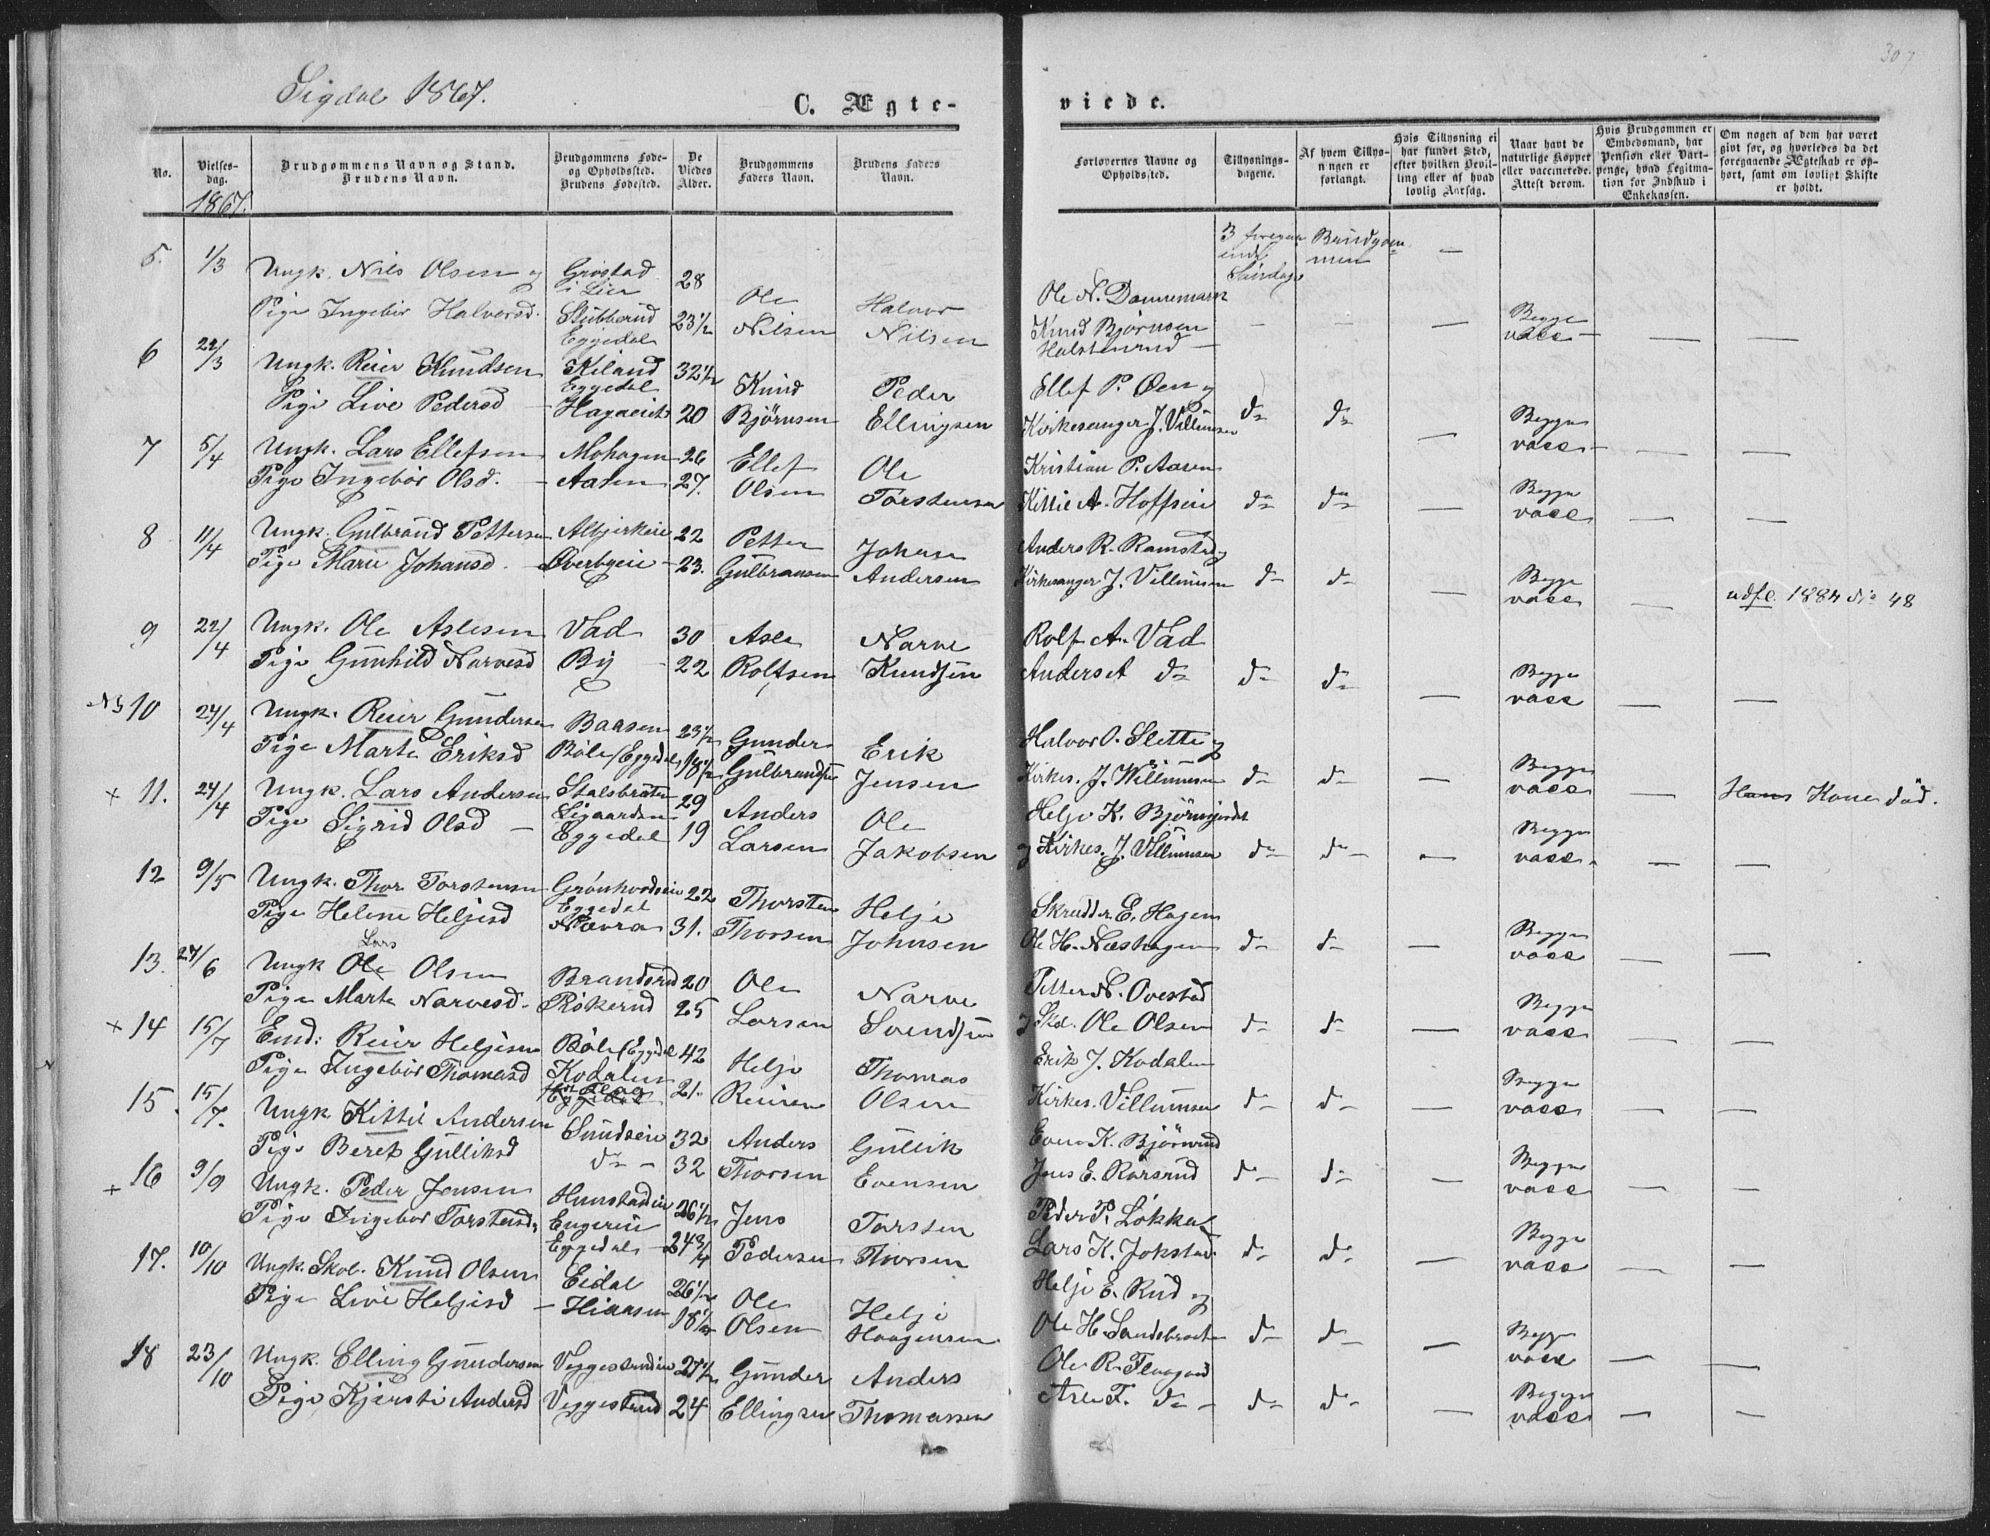 307
Sigdal 1867.
C. Ægte-
viede.
No.
Vielses-
dag.
1867.
Brudgommens Navn og Stand.
Brudens Navn.
Brudgommens Føde-
og Opholdssted.
Brudens Fødested.
De
Viedes
Alder.
Brudgommens
Faders Navn.
Brudens Faders
Navn.
Forlovernes Navne og
Opholdssted.
Tillysnings-
dagene.
Af hvem Tillys-
ningen er
forlangt.
Hvis Tillysning ei
har fundet Sted,
efter hvilken Bevil-
ling eller af hvad
lovlig Aarsag.
Naar havt de
naturlige Kopper
eller vaccinerede.
Attest derom.
Hvis Brudgommen er
Embedsmand, har
Pension eller Vart-
penge, hvad Legitima-
tion for Indskud i
Enkekassen.
Om nogen af dem har været
givt før, og hvorledes da det
foregaaende Ægteskab er op-
hørt, samt om lovligt Skifte
er holdt.
5. 1/3 Ungk. Nils Olsen og Grøstad i Lier 28 Ole Nilsen
Pige Ingebør Halvorsd. Stubberud Eggedal 23 1/2 Halvor Nilsen
Ole N. Dannemark Knud Bjørnsen Halstenrud 3 foregaaende Søndage Brudgommen — Begge vacc — — —
6 22/3 Ungk. Reier Knudsen Kiland Eggedal 32 1/2 Knud Bjørnsen
Pige Live Pedersd — Hagaeiet 20 Peder Ellingsen
Ellef P. Øen og Kirkesanger J. Villumsen do do — Begge vacc — — —
7 5/4 Ungk. Lars Ellefsen Mohagen 26 Ellef Olsen
Pige Ingebør Olsd. — Aasen 27. Ole Torstensen
Kristian P. Aasen Kittil A. Hoffseie do do — Begge vacc — —
8 11/4 Ungk. Gulbrand Pettersen Albjerkeie 22 Petter Gulbransen
Pige Marie Johansd. — Øverbyeie — 23. Johan Andersen
Anders R. Ramstad og Kirkesanger J. Villumsen do do — Begge vacc — udfl. 1884 No 48
9 22/4 Ungk. Ole Aslesen Vad 30 Asle Rolfsen
Pige Gunhild Narvesd By — 22 Narve Knudsen
Rolf A. Vad Anders A do do do — Begge vacc — —
Nb 10 24/4 Ungk. Reier Gundersen Baasen 23 1/2 Gunder Gulbrandsen
Pige Marte Eriksd Bøle/Eggedal 18 1/2 Erik Jensen
Halvor O. Slette og Kirkes. J. Willumsen do do — Begge vacc — Hans Kone død.
+ 11. 24/4 Ungk. Lars Andersen Stalsbraaten 29 Anders Larsen
Pige Sigrid Olsd — Ligaarden Eggedal 19 Ole Jakobsen
Helje K. Bjørnejordet og Kirkes. J. Villumsen do do — — Begge vacc. — —
12 9/5 Ungk. Thor Torstensen Grønhovdeie Eggedal 22 Thorsten Thorsen
Pige Helene Heljesd Nævra 31. Helje Johnsen
Skredder E. Hagen Ole H. Næshagen do do — Begge vacc — —
13. 24/6 Ungk Ole Lars Olsen Brandsrud 20 Ole Larsen
Pige Marte Narvesd. Røkerud 25 Narve Svendsen
Petter N. Ovestad og Skol. Ole Olsen do do — Begge vacc — —
+ 14 15/7 Emd: Reier Heljesen Bøle/Eggedal 42 Helje Reiersen
Pige Ingebør Thomasd Kodalen 21. Thomas Olsen
Erik J. Kodalen Kirkes. Villumsen do do — Begge vacc — —
15. 15/7. Ungk. Kittil Andersen Sundseie 32 Anders Thorsen
Pige Beret Gulliksd do — 32 Gullik Evensen
Even K. Bjørnrud Jens E. Rørsrud do do — Begge vacc — —
+ 16 9/9 Ungk. Peder Jensen Humstadeie 26 1/2 Jens Pedersen
Pige Ingebor Torstensd. Engereie Eggedal — 24 3/4 Torsten Thorsen
Peder P. Løkka Lars K. Jokstad do do — Begge vacc — —
17. 10/10 Ungk. Skol. Knud Olsen Eidal 26 1/2 Ole Olsen
Pige Live Heljesd — Hiaasen 18 1/2 Helje Haagensen
Helje E. Rud og Ole H. Sandsbraaten do do — Begge vacc — —
18 23/10 Ungk. Elling Gundersen Veggesrudeie 27 1/2 Gunder Ellingsen
Pige Kjersti Andersd Veggesrud 24 Anders Thomassen
Ole R. Flaagan Asle F. do — do do — Begge vacc — —